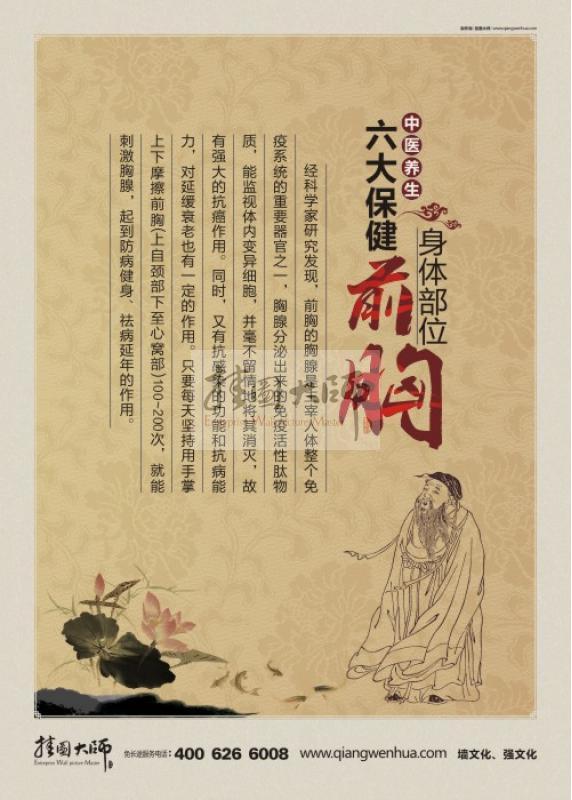 挂图大师 | www.qiangwenhua.com
中医养生
六大保健
身体部位
前胸
经科学家研究发现，前胸的胸腺是主宰人体整个免
疫系统的重要器官之一，胸腺分泌出来的免疫活性肽物
质，能监视体内变异细胞，并毫不留情地将其消灭，故
有强大的抗癌作用。同时，又有抗感染的功能和抗病能
力，对延缓衰老也有一定的作用。只要每天坚持用手掌
上下摩擦前胸(上自颈部下至心窝部)100~200次，就能
刺激胸腺，起到防病健身、祛病延年的作用。
挂图大师
Enterprises Wall picture Master
挂图大师
Enterprises Wall picture Master
免长途服务电话：400 626 6008
www.qiangwenhua.com
墙文化、强文化